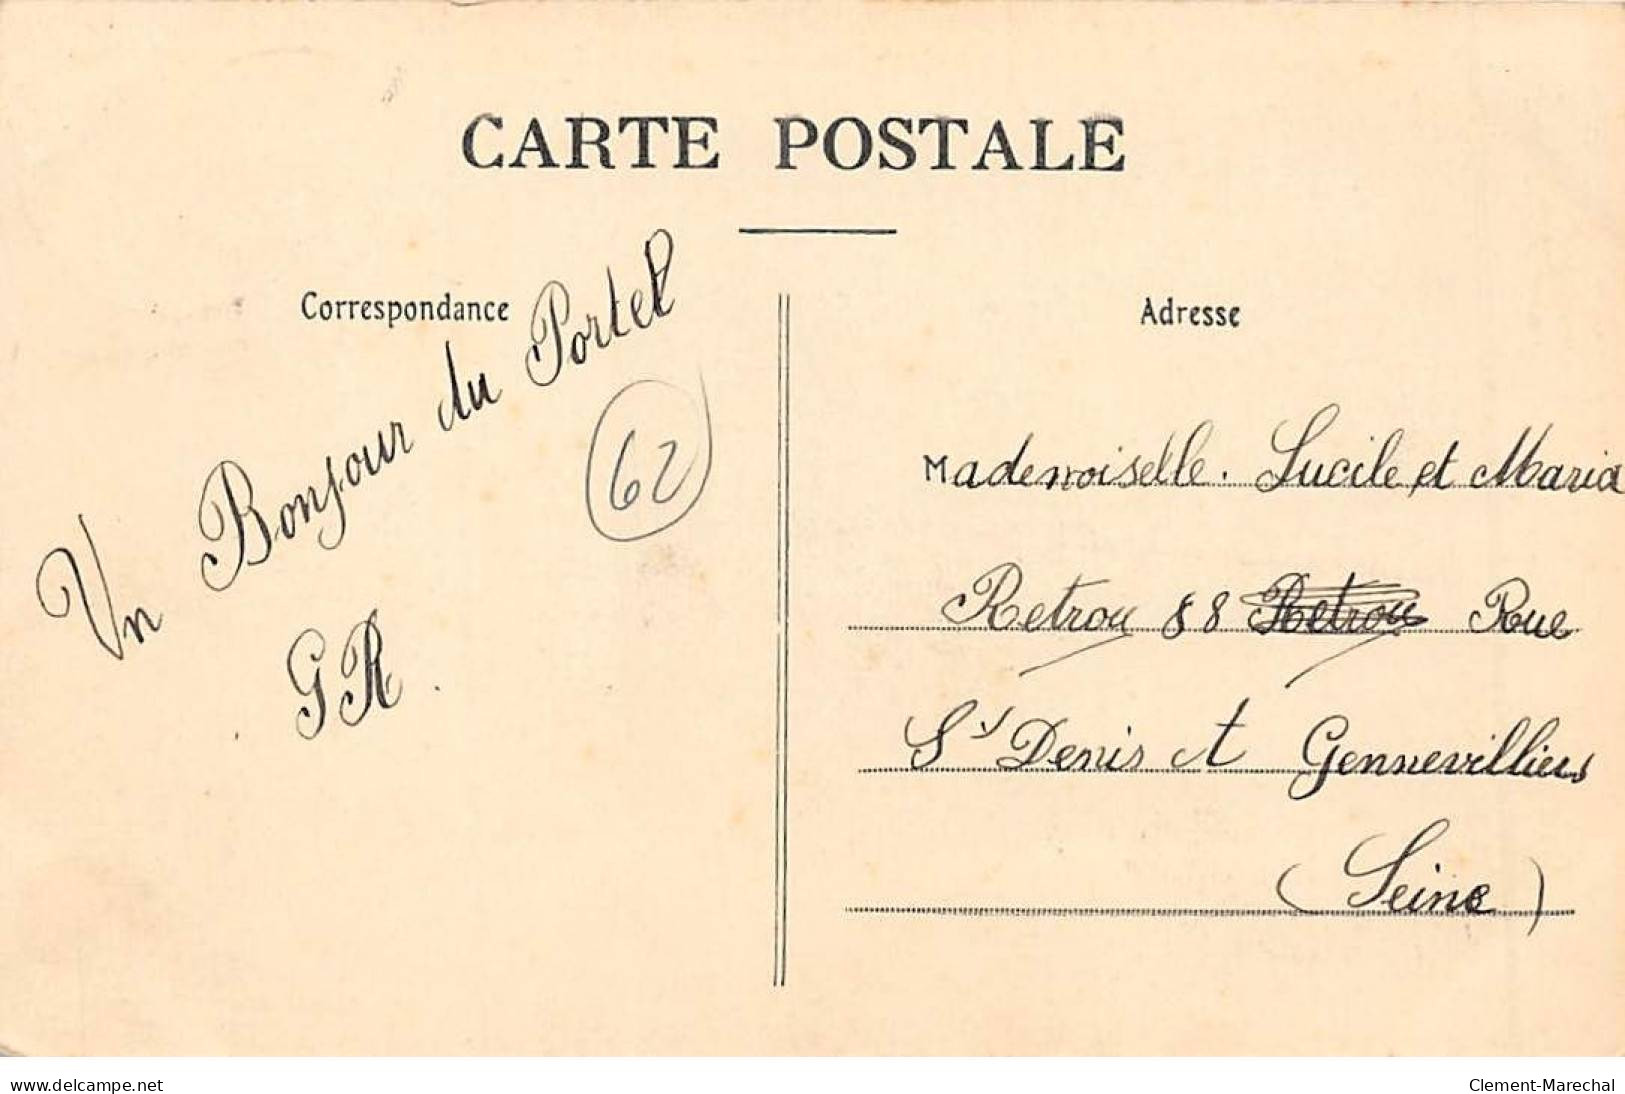 CARTE POSTALE
Correspondance
Un Bonjour du Portel
62
GR.
Adresse
Mademoiselle. Lucile et Maria
Retrou 88 Retrou Rue
St Denis et Gennevilliers
(Seine)
www.delcampe.net
Clement-Marechal